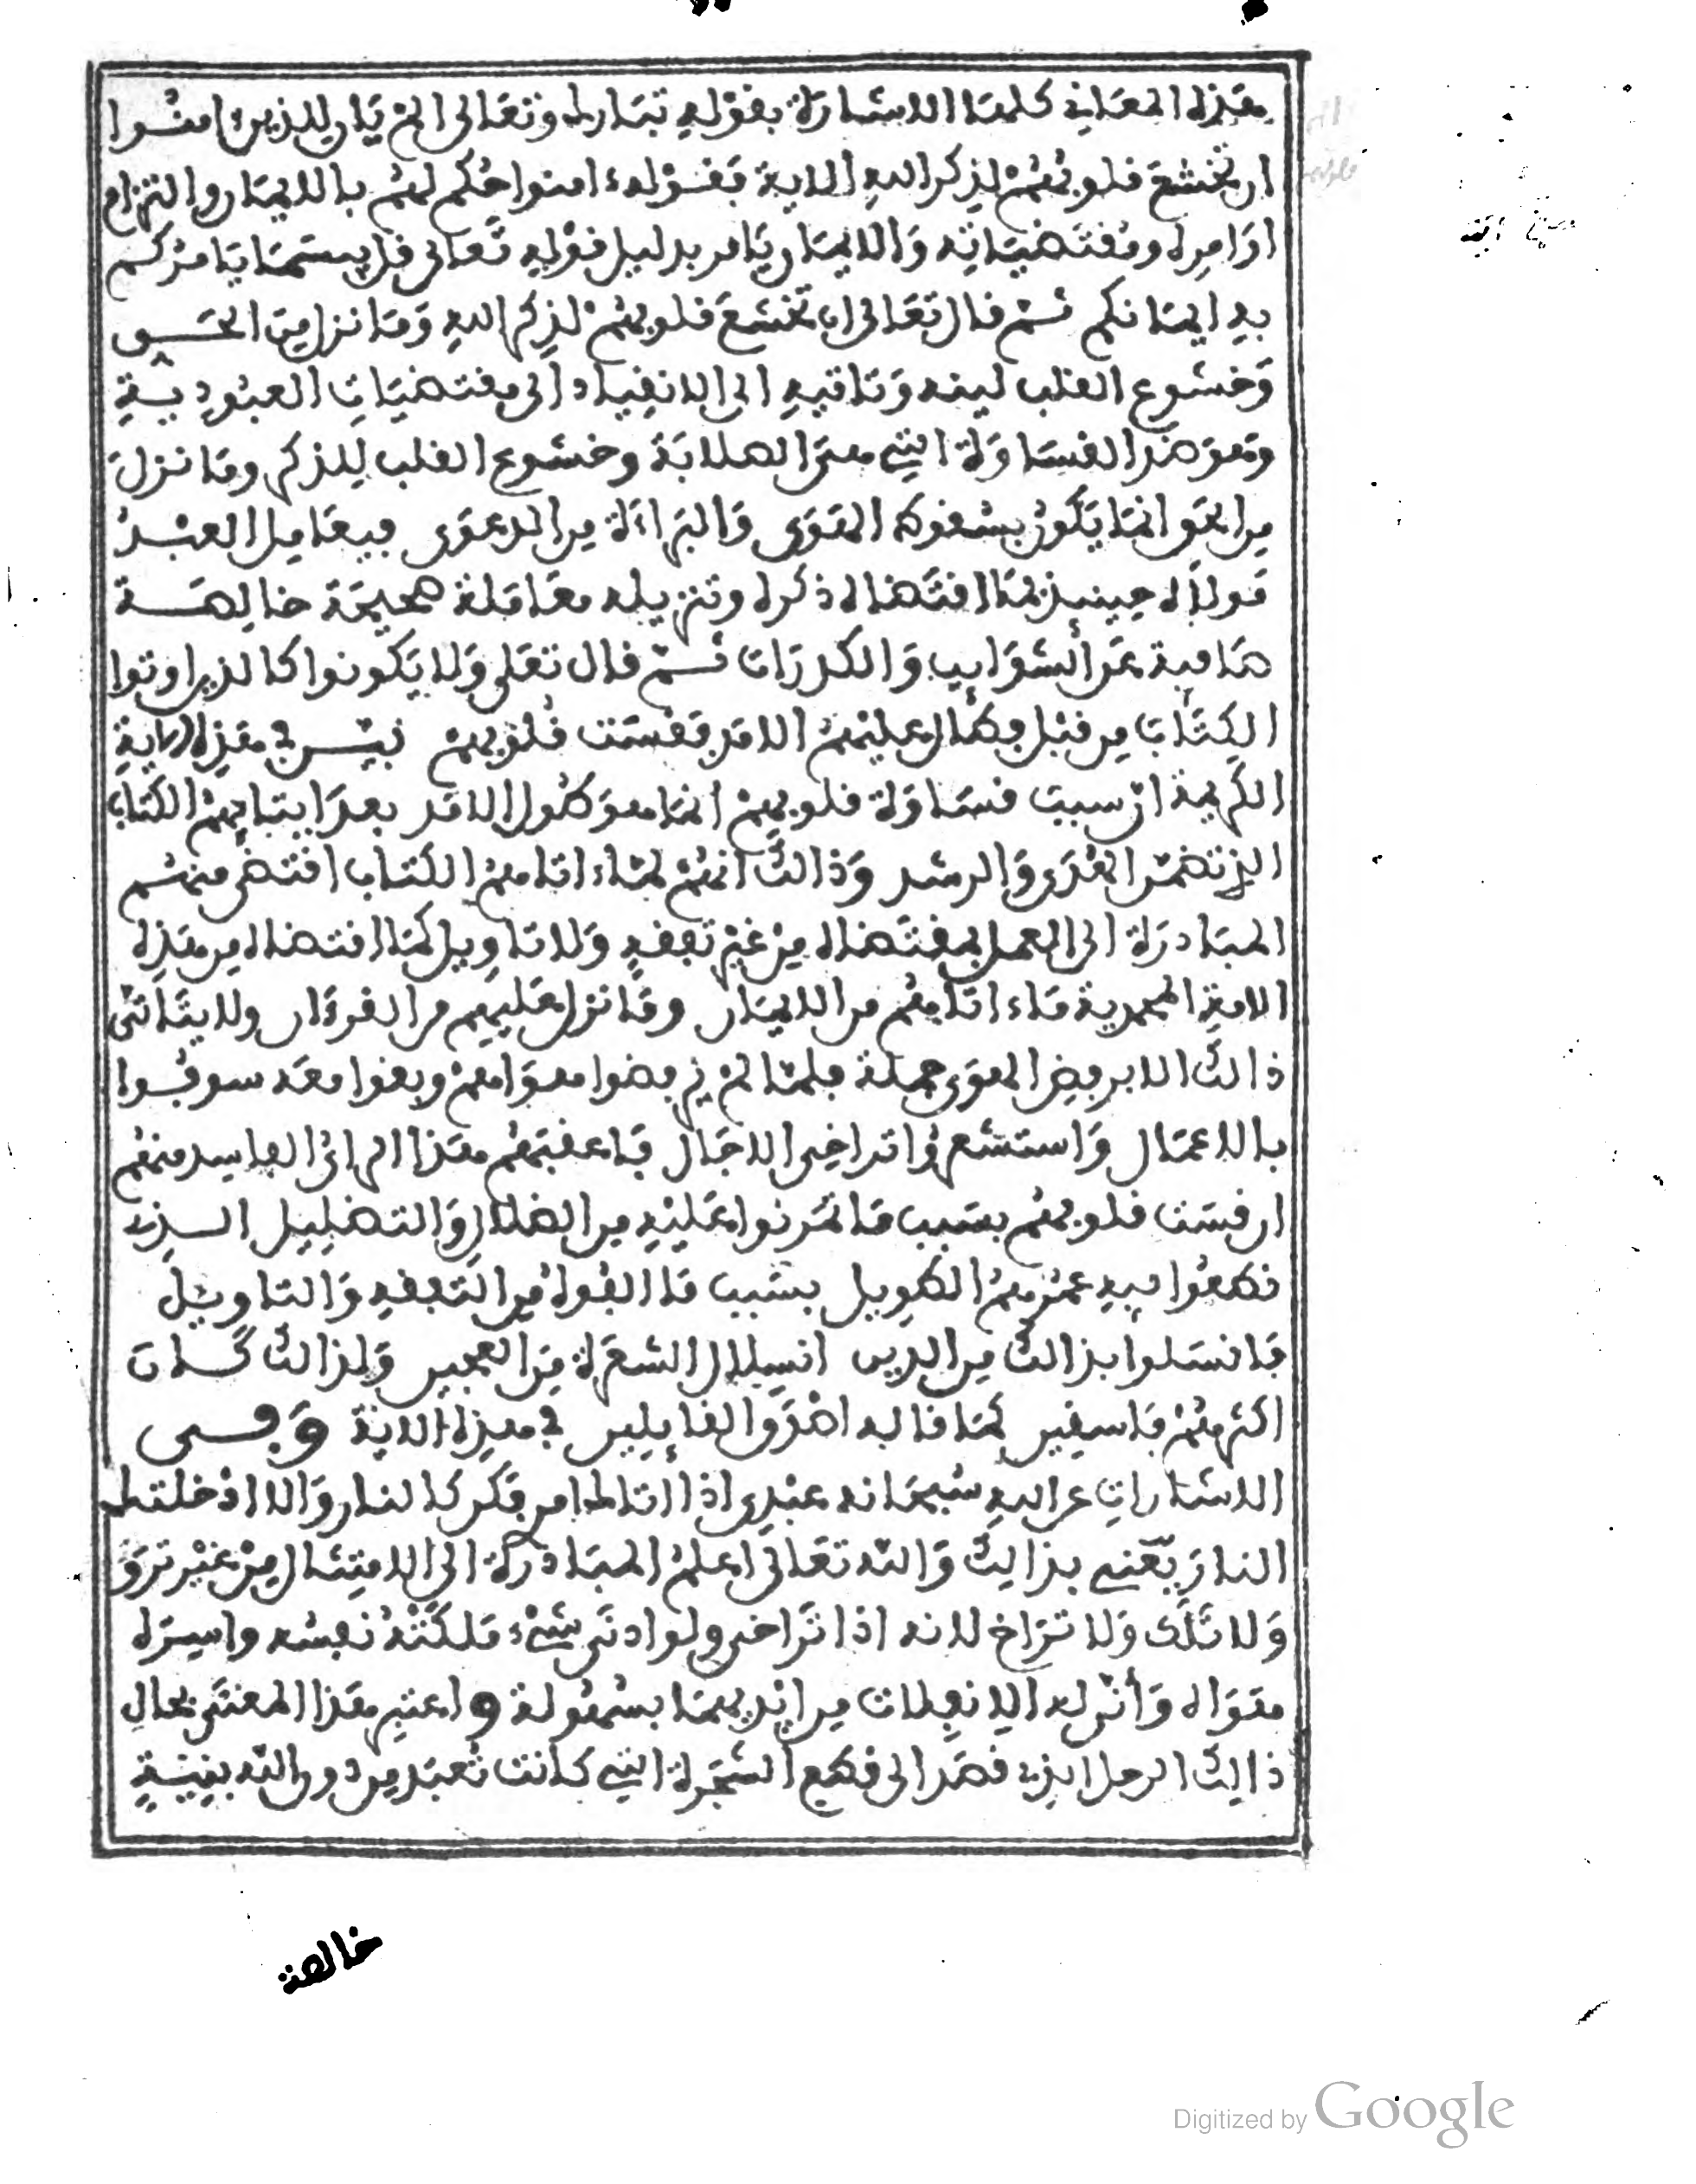 هذه المعاني كلها الاشارة بقوله تبارك وتعالى الم يان للذين ءامنوا
ان تخشع قلوبهم لذكر الله الاية فقوله ءامنوا حكم لهم بالايمان والتزام
اوامره ومقتضياته والايمان يامر بدليل قوله تعالى قل بيسما يامركم
به ايمانكم ثم قال تعالى ان تخشع قلوبهم لذكر الله وما نزل من الحق
وخشوع القلب لينه وتاتيه الى الانقياد الى مقتضيات العبودية
وهو ضد القساوة التي هي الصلابة وخشوع القلب للذكر وما نزل
من الحق انما يكون بسقوط الهوى والبراءة من الدعوى فيعامل العبد
مولاه حينيذ بما اقتضاه ذكره وتنزيله معاملة صحيحة خالصة
صافية عن الشوايب والكدرات ثم قال تعلى ولا يكونوا كالذين اوتوا
الكتاب من قبل فطال عليهم الامد فقست قلوبهم نبين في هذه الاية
الكريمة ان سبب قساوة قلوبهم انما هو طول الامد بعد ايتايهم الكتاب
الذي تضمن الهدى والرشد وذالك انهم لما ءاتاهم الكتاب اقتضى منهم
المبادرة الى العمل بمقتضاه من غير تفقه ولا تاويل كما اقتضاه من هذه
الامة المحمدية ما ءاتاهم من الايمان وما نزل عليهم من القرءان ولا يتاتى
ذالك الا برفض الهوى جملة فلما لم يرفضوا هواهم وبقوا معه سوفوا
بالاعمال واستشعروا تراخي الاجال فاعقبهم هذا الراي الفاسد منهم
ان قست قلوبهم بسبب ما تمرنوا عليه من الضلال والتضليل الذي
قطعوا فيه عمرهم الطويل بسبب ما الفوه من التفقه والتاويل
فانسلوا بذالك من الدين انسلال الشعرة من العجين ولذالك كان
اكثرهم فاسقين كما قاله اصدق القايلين في هذه الاية وفي
الاشارات عن الله سبحانه عبدي اذا اتاك امر فكر كالنار والا ادخلتك
النار يعني بذالك والله تعالى اعلم المبادرة الى الامتثال من غير ترو
ولا تلك ولا تراخ لانه اذا تراخى ولو ادنى شيء ملكته نفسه واسره
هواه وأتى له الانفلات من ايديهما بسهولة واعتبر هذا المعنى بحال
ذالك الرجل الذي قصد الى قطع الشجرة التي كانت تعبد من دون الله بنية
خالصة
Digitized by Google